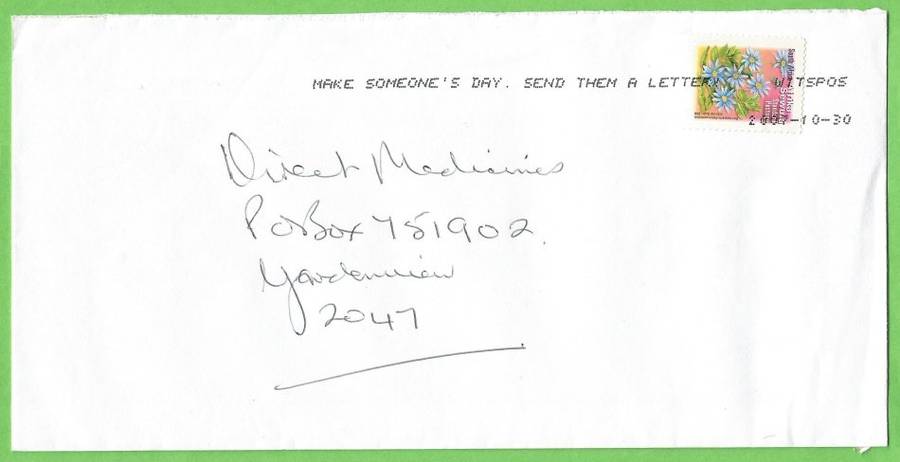 MAKE SOMEONE'S DAY. SEND THEM A LETTER WITSPOS
2007-10-30
Direct Medicines
P O Box 751902
Gardenview
2047